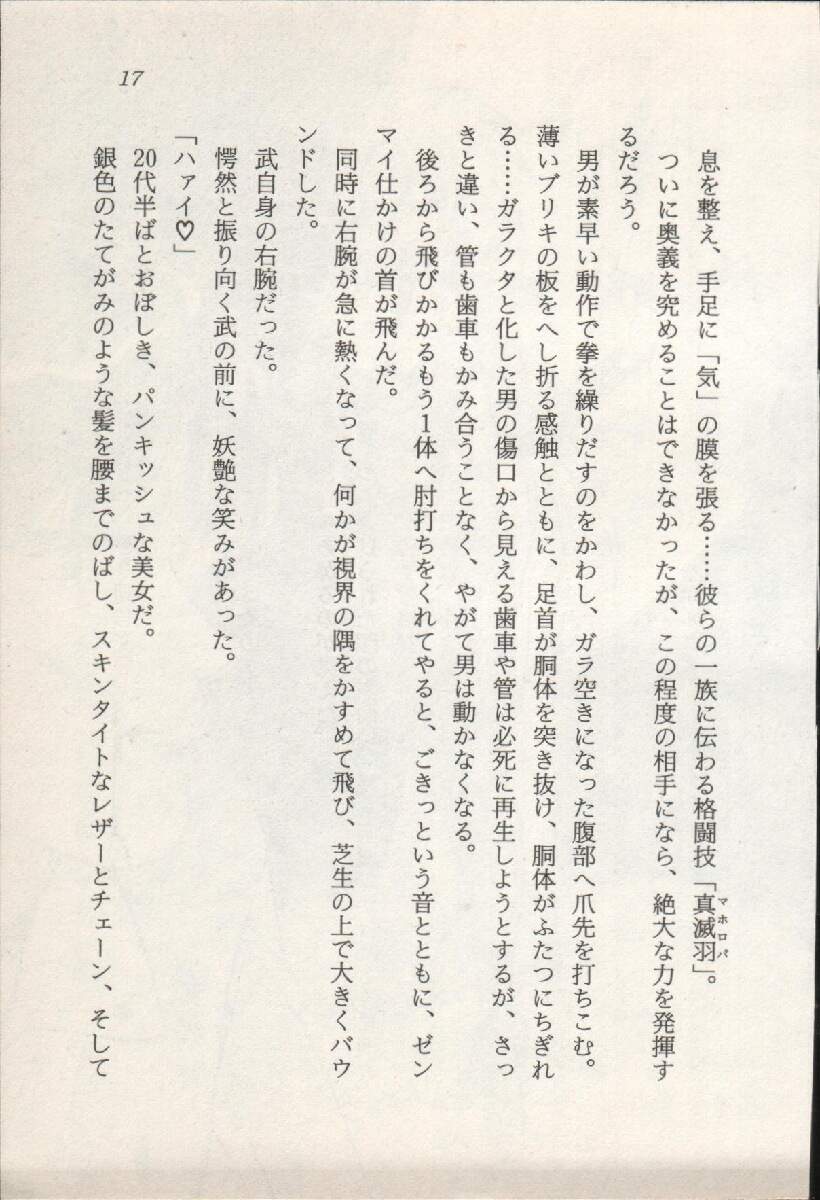 17
息を整え、手足に「気」の膜を張る……彼らの一族に伝わる格闘技「真滅羽」。
マホロバ
ついに奥義を究めることはできなかったが、この程度の相手になら、絶大な力を発揮す
るだろう。
男が素早い動作で拳を繰りだすのをかわし、ガラ空きになった腹部へ爪先を打ちこむ。
薄いブリキの板をへし折る感触とともに、足首が胴体を突き抜け、胴体がふたつにちぎれ
る……ガラクタと化した男の傷口から見える歯車や管は必死に再生しようとするが、さっ
きと違い、管も歯車もかみ合うことなく、やがて男は動かなくなる。
後ろから飛びかかるもう1体へ肘打ちをくれてやると、ごきっという音とともに、ゼン
マイ仕かけの首が飛んだ。
同時に右腕が急に熱くなって、何かが視界の隅をかすめて飛び、芝生の上で大きくバウ
ンドした。
武自身の右腕だった。
愕然と振り向く武の前に、妖艶な笑みがあった。
「ハァイ♡」
20代半ばとおぼしき、パンキッシュな美女だ。
銀色のたてがみのような髪を腰までのばし、スキンタイトなレザーとチェーン、そして